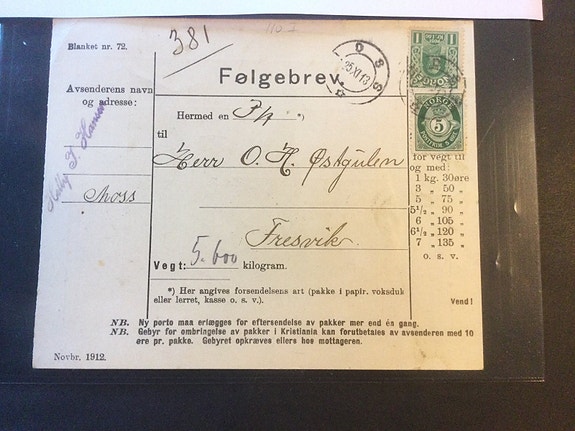 Blanket nr. 72.
381
Avsenderens navn
og adresse:
Moss
Følgebrev.
Hermed en Pk *)
til
Herr O. H. Østgulen
Fresvik
Vegt: 5.600 kilogram.
*) Her angives forsendelsens art (pakke i papir, voksduk
eller lerret, kasse o. s. v.).
Vend!
MOSS
25 XI 13
1
1
NORGE
5
for vegt til
og med:
1 kg. 30 øre
3 „ 50 „
5 „ 75 „
5 1/2 „ 90 „
6 „ 105 „
6 1/2 „ 120 „
7 „ 135 „
o. s. v.
NB. Ny porto maa erlægges for eftersendelse av pakker mer end én gang.
NB. Gebyr for ombringelse av pakker i Kristiania kan forutbetales av avsenderen med 10
øre pr. pakke. Gebyret opkræves ellers hos mottageren.
Novbr. 1912.